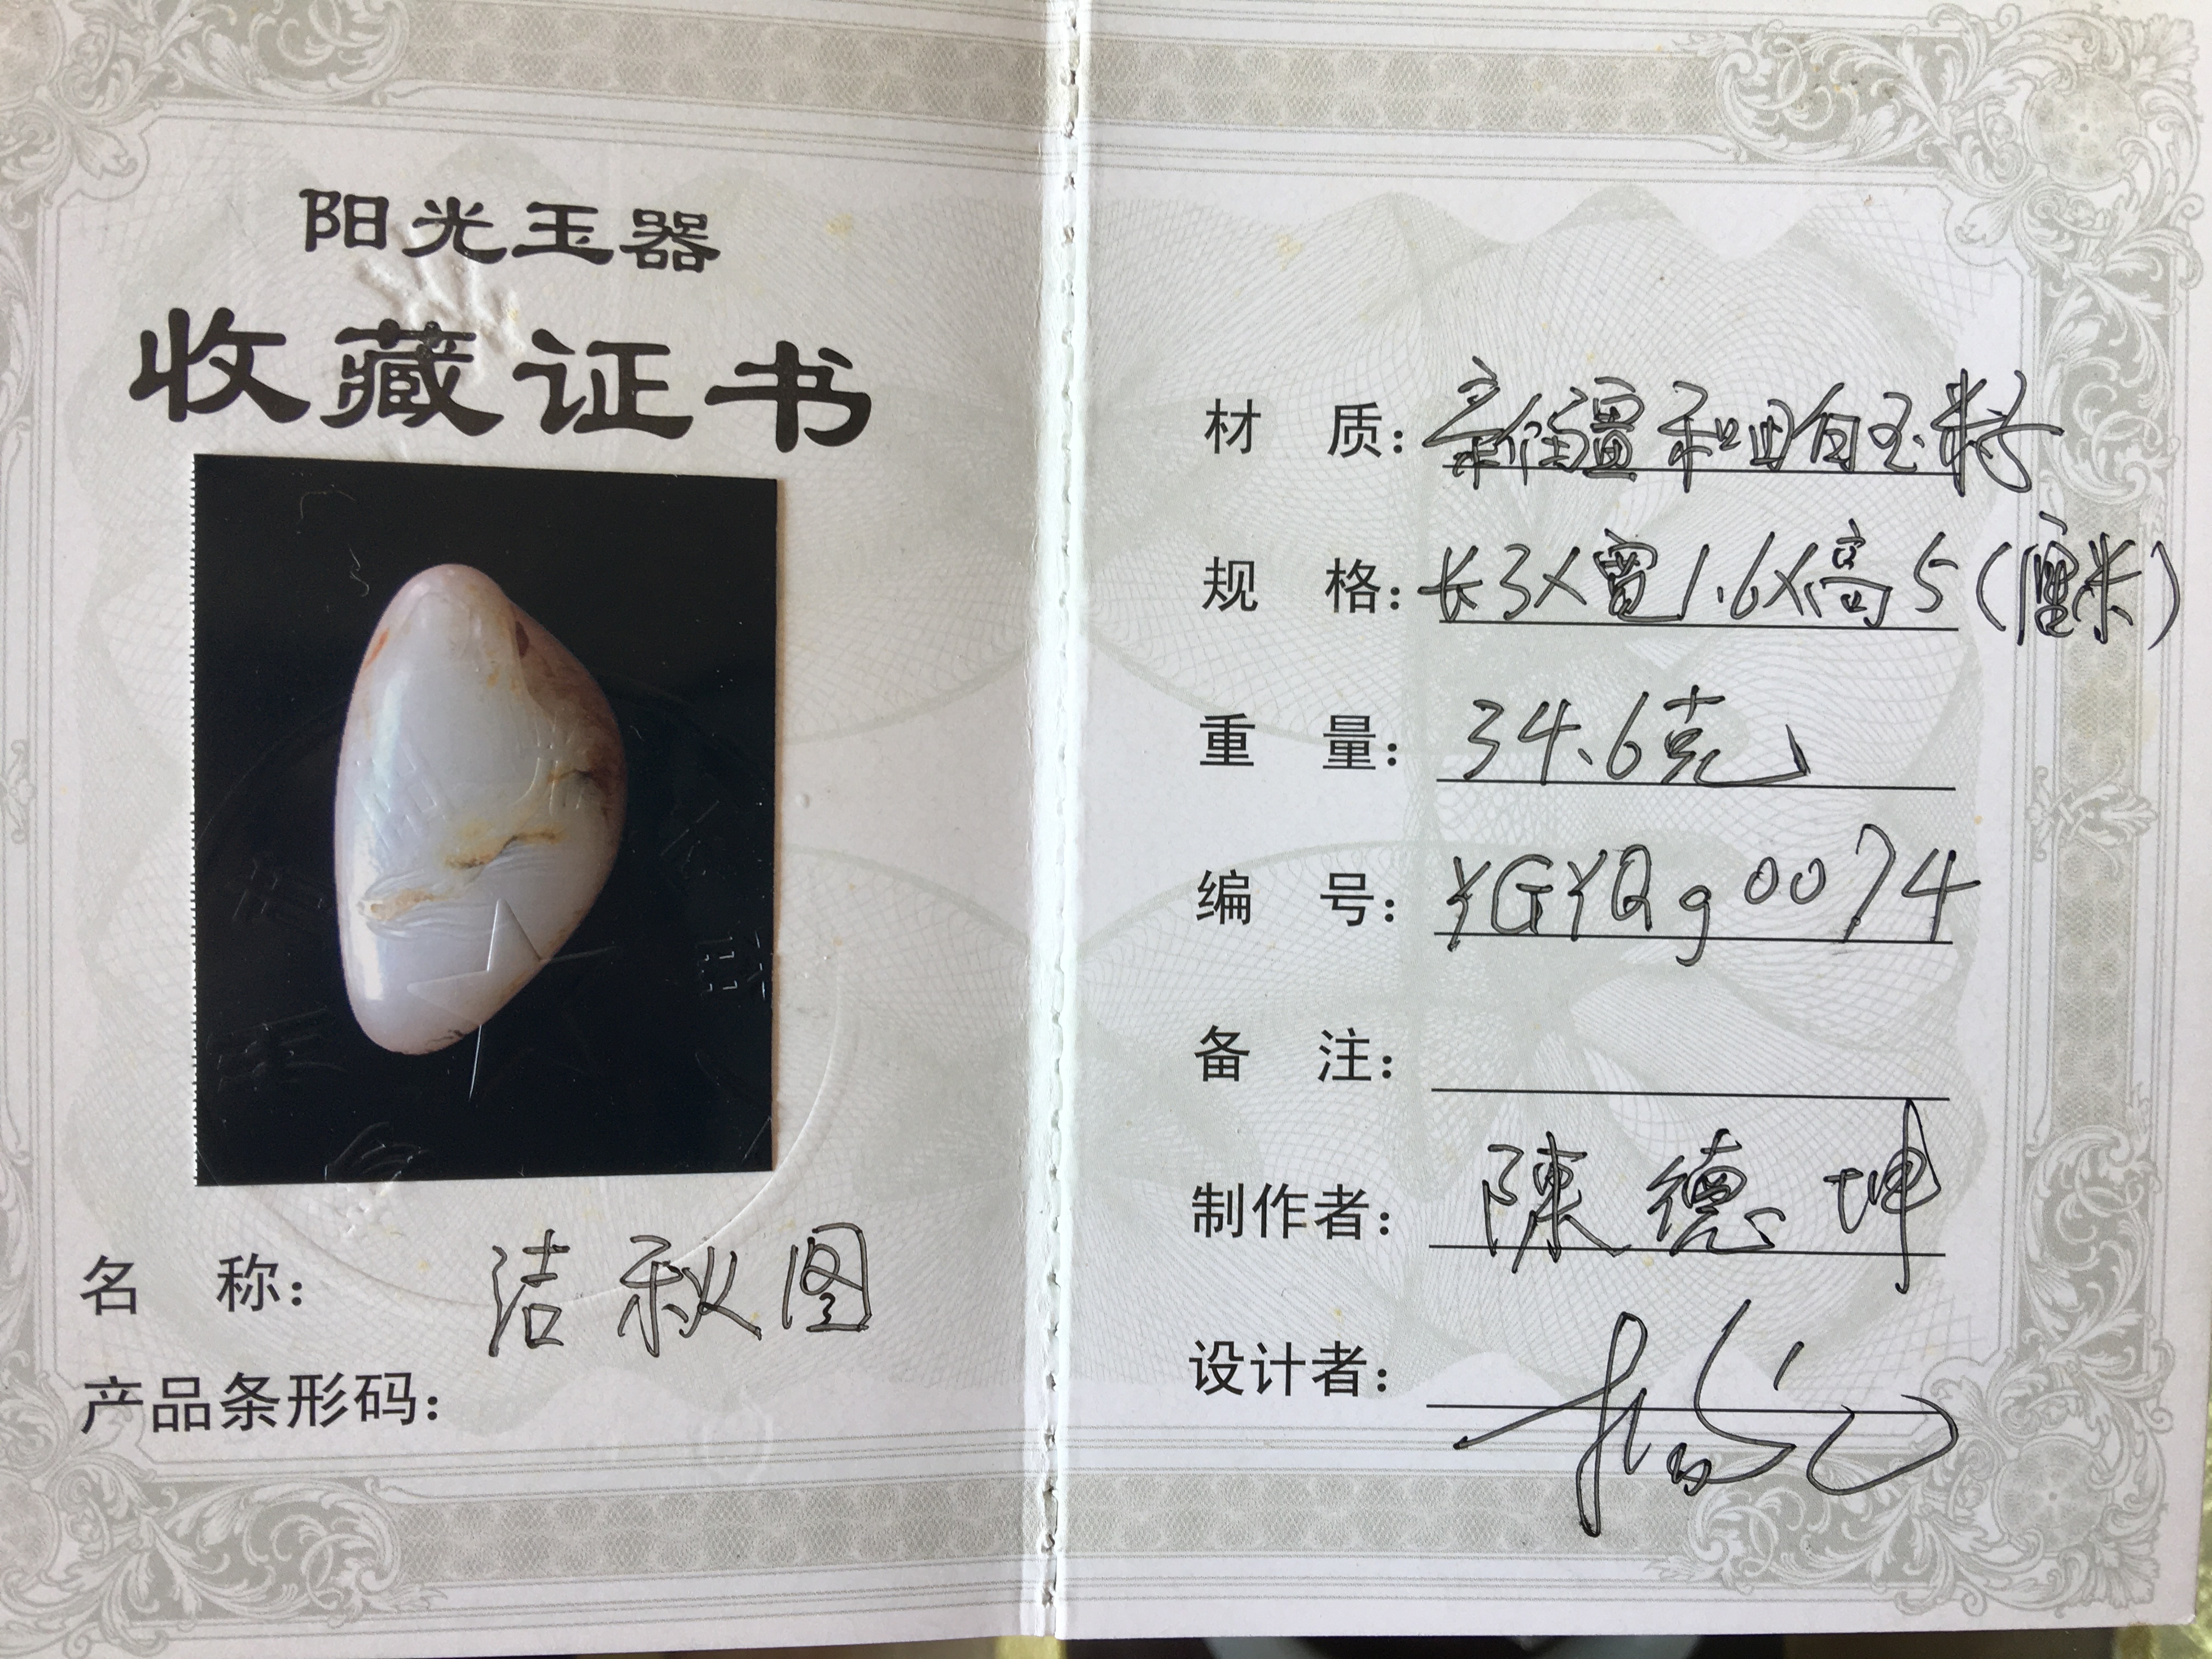 阳光玉器
收藏证书
名 称： 洁秋图
产品条形码：
材 质： 新疆和田白玉籽
规 格： 长3X宽1.6X高5（厘米）
重 量： 34.6克
编 号： YGYQg0074
备 注：
制作者： 陳德坤
设计者：